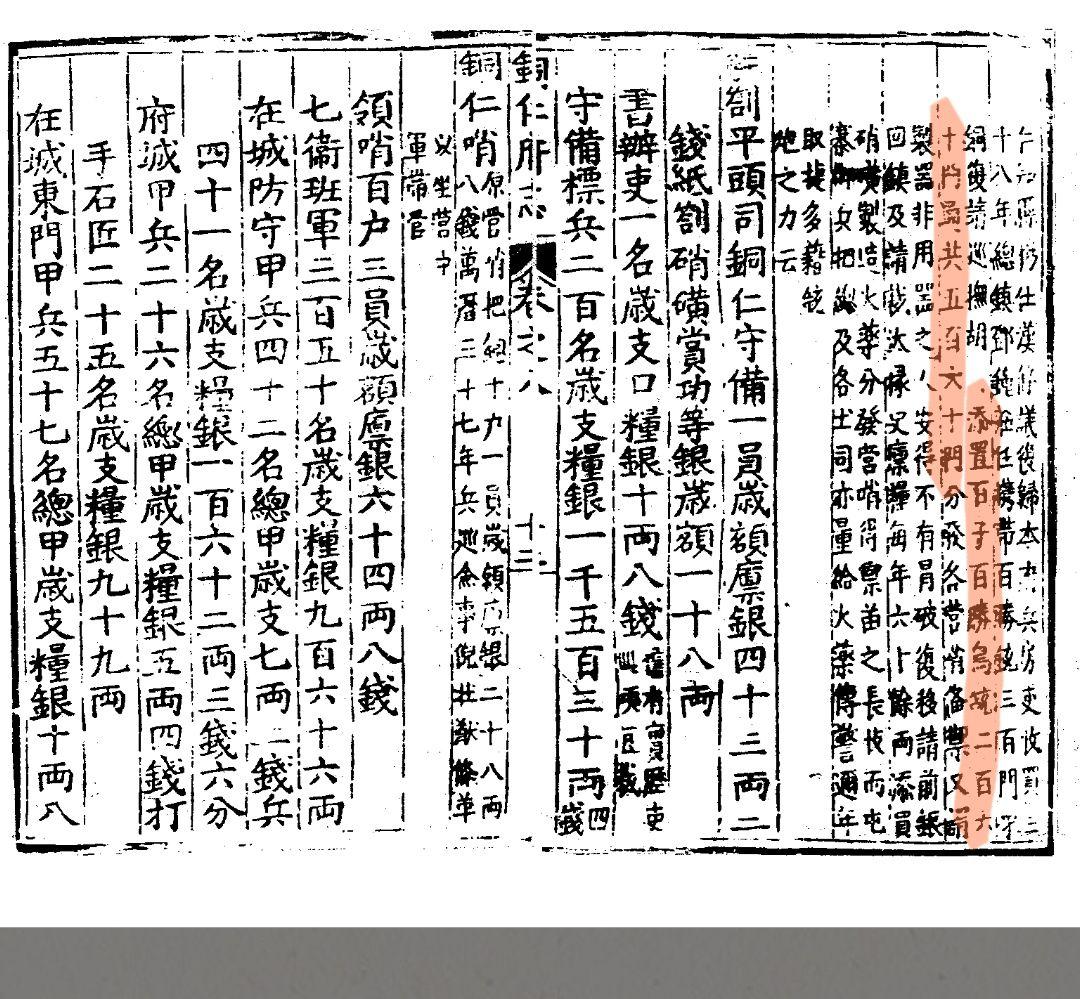 仍仕漢議後歸本兵房吏收買二
十八年總鎮鄧鍾蒞任攜帶百勝銃三百門于
銅復請巡撫胡　添置百子百勝鳥銃二百六
十共五百六十門分發各營哨備禦又請
製器非用器之人安得不有冐破復移請前銀
回鎮及請裁糧每年六十餘両添員
硝磺製造火藥分發營哨得禦苗之長技而屯
寨兵把總及各土司亦量給火藥傳警邇年
取捷多藉銃
砲之力云
劄平頭司銅仁守備一員歲額廪銀四十三両二
錢紙劄硝磺賞功等銀歲額一十八両
書辦吏一名歲支口糧銀十両八錢
守備標兵二百名歲支糧銀一千五百三十両四錢
銅仁府志　卷之八　十二
銅仁哨原營哨把總十九一員歲額廪銀二十八両
八錢萬曆三十七年兵巡僉事倪壯猷條革
以坐營守
軍帶管
領哨百户三員歲額廪銀六十四両八錢
七衛班軍三百五十名歲支糧銀九百六十六両
在城防守甲兵四十二名總甲歲支七両二錢兵
四十一名歲支糧銀一百六十二両三錢六分
府城甲兵二十六名總甲歲支糧銀五両四錢打
手石匠二十五名歲支糧銀九十九両
在城東門甲兵五十七名總甲歲支糧銀十両八